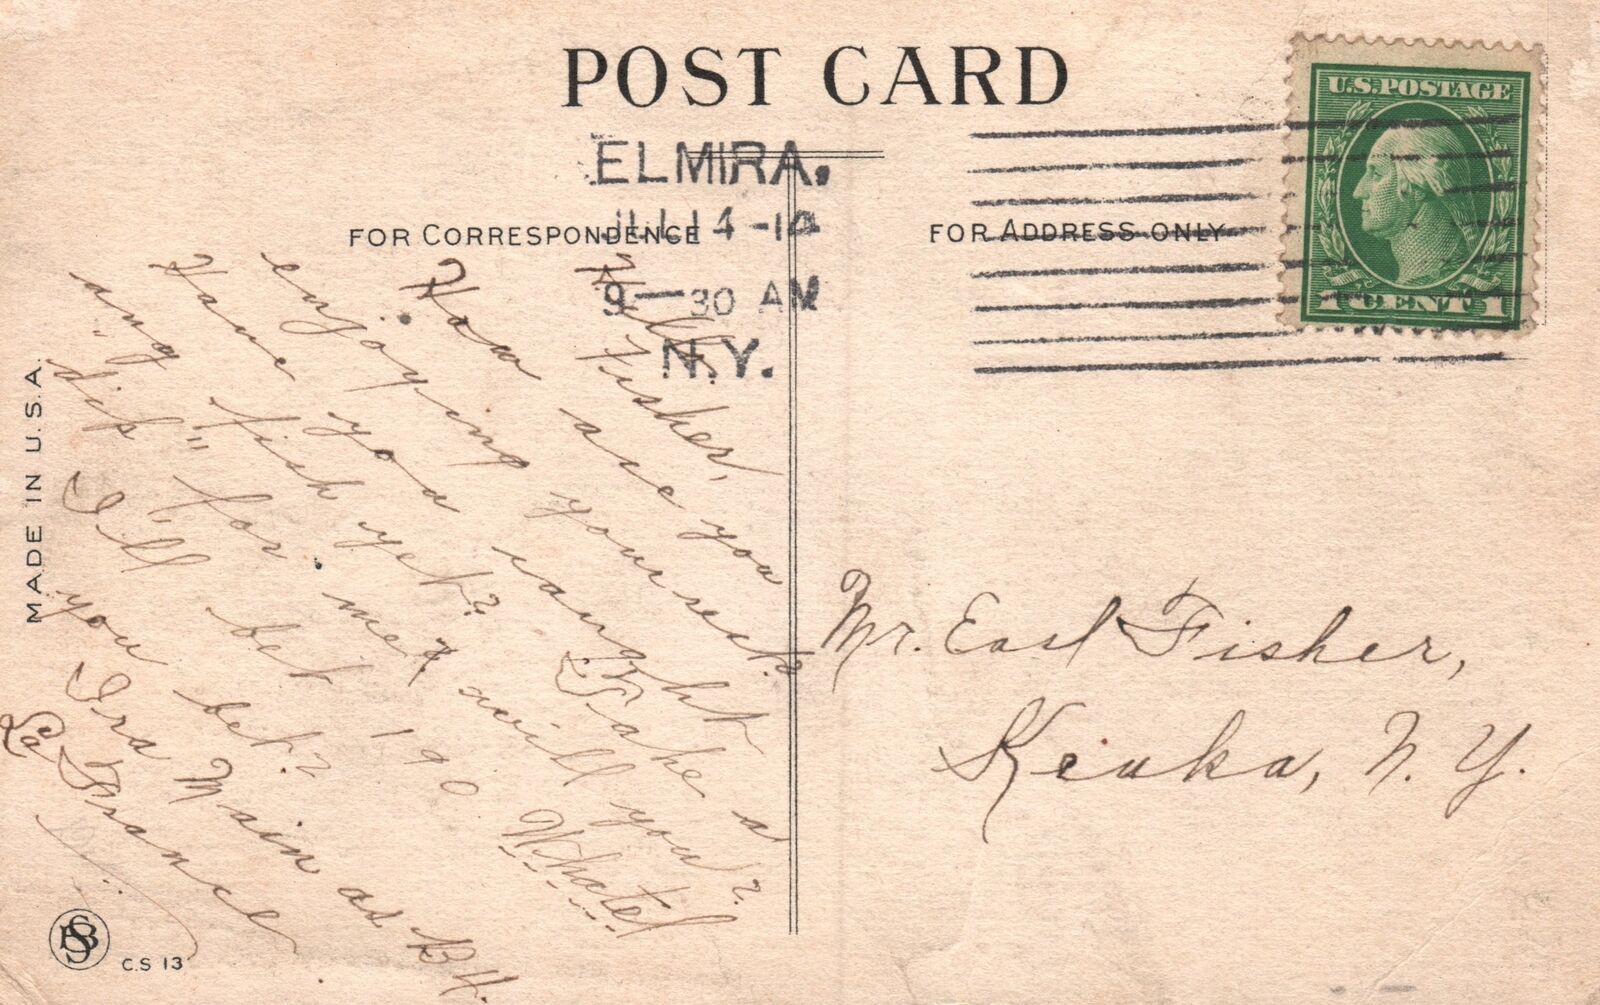 POST CARD
U.S. POSTAGE
1 CENT 1
ELMIRA.
JUL 14 -14
9 - 30 AM
N.Y.
FOR CORRESPONDENCE
FOR ADDRESS ONLY
Hello Fisher,
How are you
enjoying your rest?
Have you caught
any fish yet? Take a
"dip" for me & will you?
I'll bet 190
you bet?
Ira Main as B.H.
La France
Mr. Earl Fisher,
Keuka, N.Y.
MADE IN U.S.A.
C.S 13